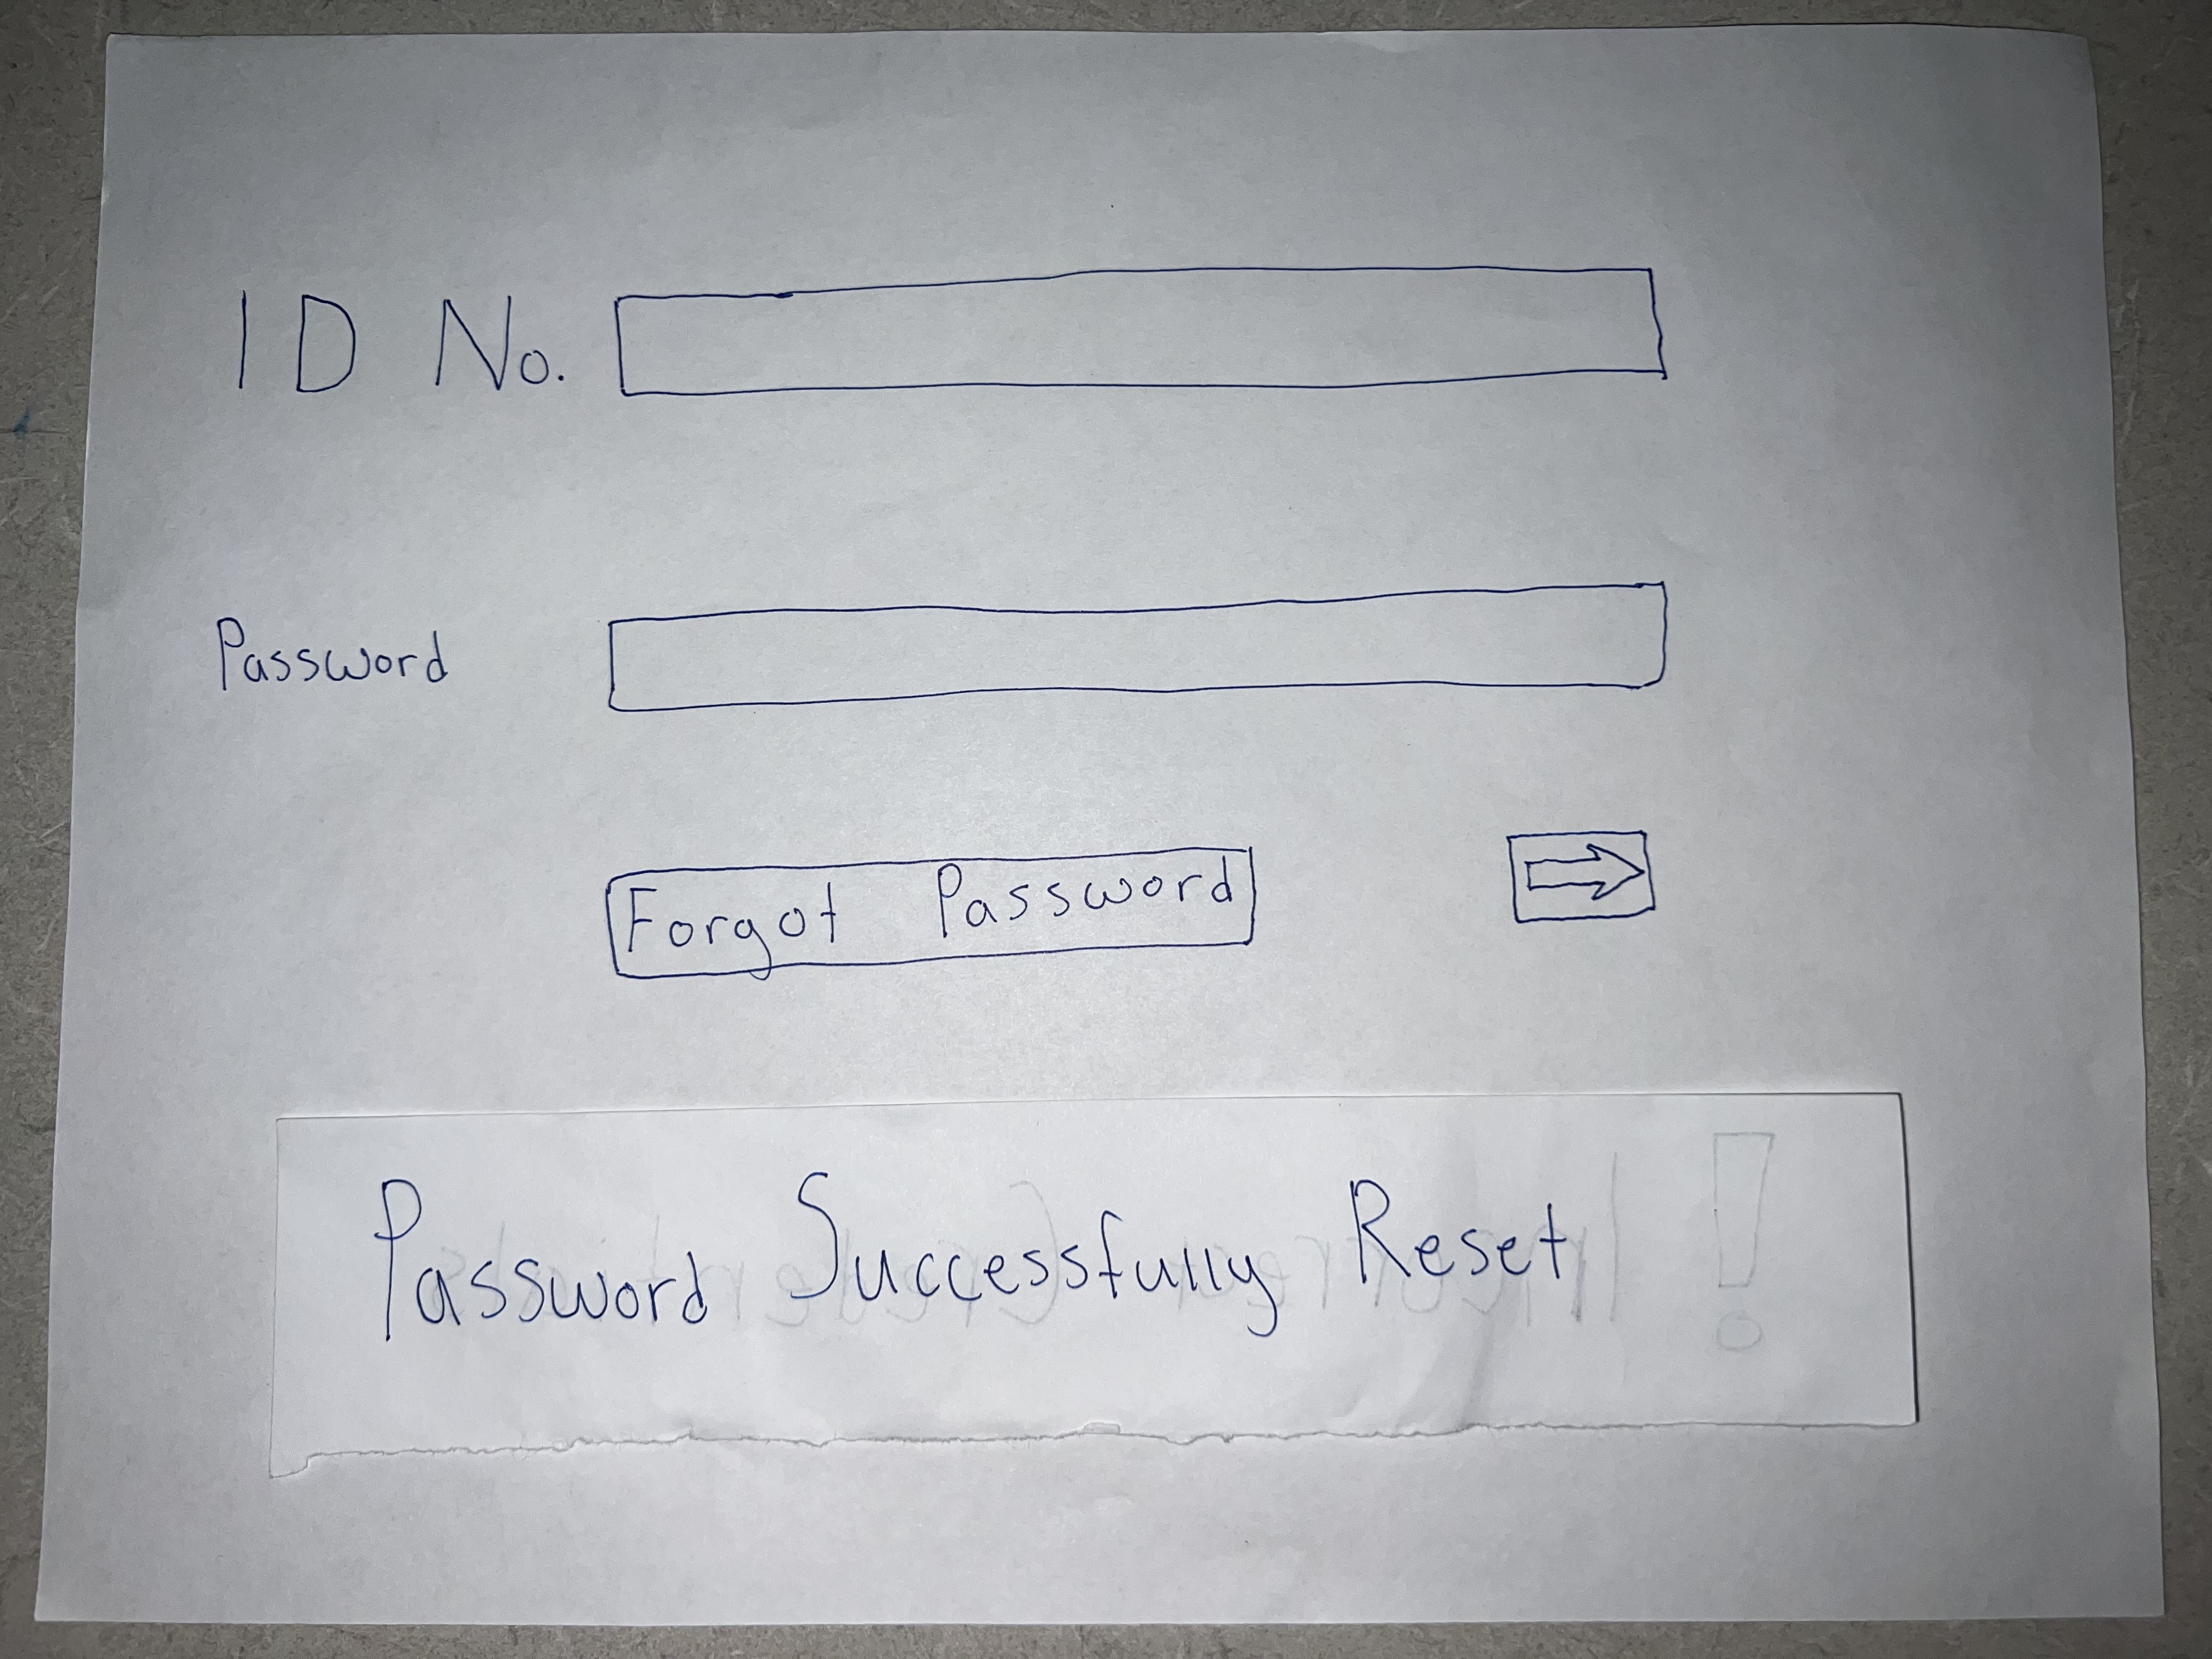 ID No.
Password
Forgot Password
Password Successfully Reset